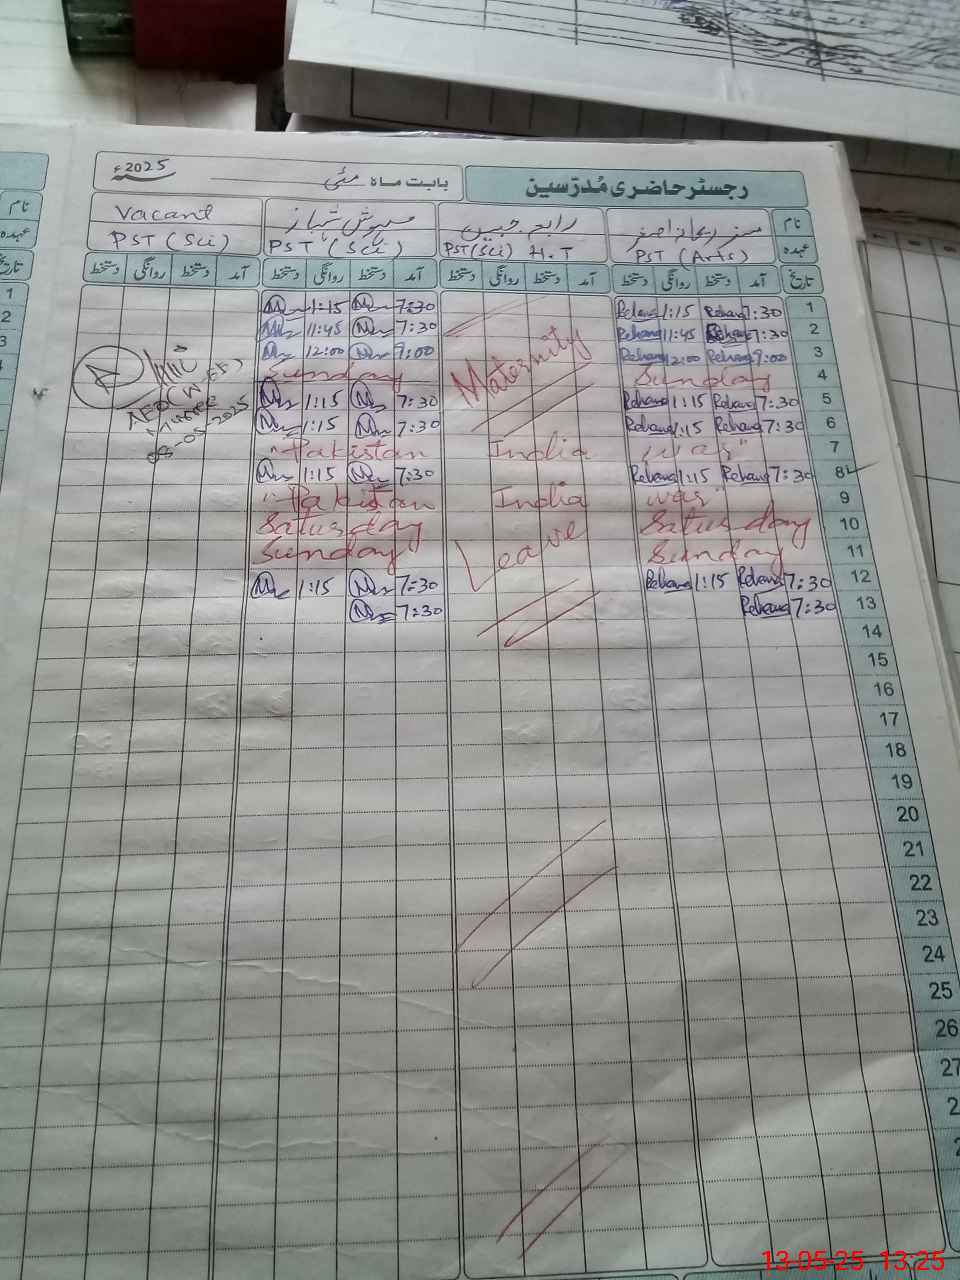 رجسٹر حاضری مُدرّسین
بابت ماہ مئی 2025ء
نام مسز ریحانہ اصغر رابعہ جبیں مہوش شہباز Vacant
عہدہ PST (Arts) PST (Sci) H.T PST (Sci) PST (Sci)
تاریخ آمد دستخط روانگی دستخط آمد دستخط روانگی دستخط آمد دستخط روانگی دستخط آمد دستخط روانگی دستخط
1 7:30 Rehana 1:15 Rehana 7:30 1:15
2 7:30 Rehana 11:45 Rehana 7:30 11:45
3 9:00 Rehana 12:00 Rehana 9:00 12:00
Maternity
4 Sunday Sunday
5 7:30 Rehana 1:15 Rehana 7:30 1:15
6 7:30 Rehana 1:15 Rehana 7:30 1:15
7 "Pakistan India war"
8 7:30 Rehana 1:15 Rehana 7:30 1:15
9 "Pakistan India war"
10 Saturday Saturday
11 Sunday Sunday
Leave
12 7:30 Rehana 1:15 Rehana 7:30 1:15
13 7:30 Rehana 7:30
14
15
16
17
18
19
20
21
22
23
24
25
26
27
AEO (W-EE)
Murree
08-05-2025
نام
عہدہ
تاریخ
1
2
3
4
13-05-25 13:25